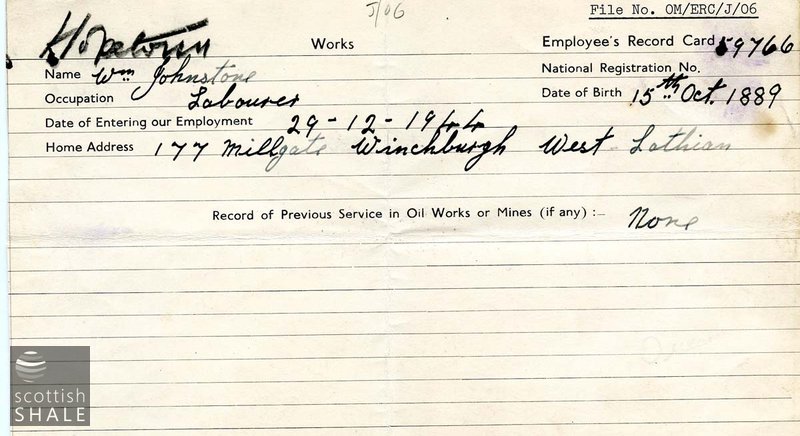 J/06
File No. OM/ERC/J/06
Hopetoun Works
Employee's Record Card 59766
Name Wm Johnstone
National Registration No.
Occupation Labourer
Date of Birth 15th Oct. 1889
Date of Entering our Employment 29-12-1944
Home Address 177 Millgate Winchburgh West Lothian
Record of Previous Service in Oil Works or Mines (if any) :— None
scottish
SHALE